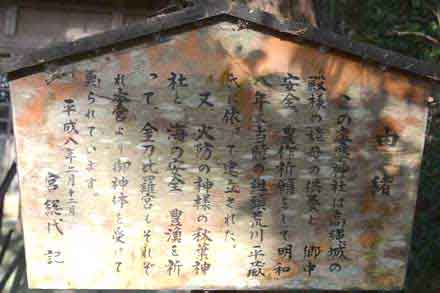 由緒
この支家神社は高鍋城の
殿様の祖母の供養と郷中
安全、豊作祈願をして明和
八年、当時の組頭荒川平蔵
氏に依って建立された。
又火防の神様の秋葉神
社と海の安全豊漁を祈
って、金刀比羅宮もそれぞ
れ本宮より御神体を受けて
祭られています。
平成八年二月十二日
宮総代記